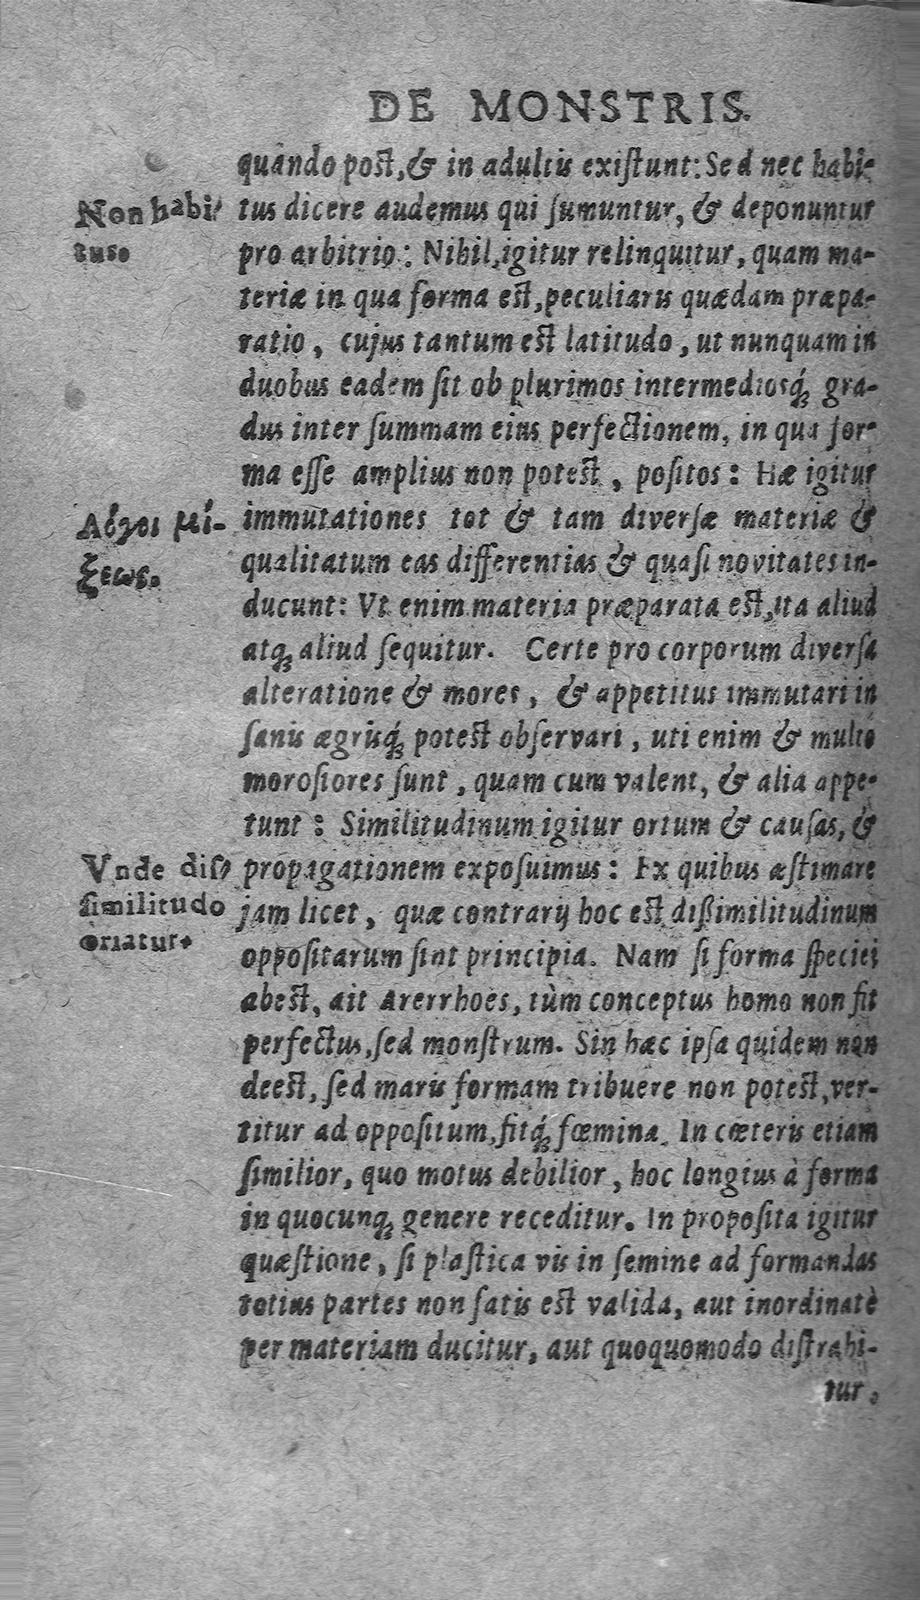 DE MONSTRIS.
quando post, & in adultis existunt: Sed nec habi-
Non habi-
tus.
tus dicere audemus qui sumuntur, & deponuntur
pro arbitrio: Nihil, igitur relinquitur, quam ma-
teriæ in qua forma est, peculiaris quædam præpa-
ratio, cujus tantum est latitudo, ut nunquam in
duobus eadem sit ob plurimos intermediosq́; gra-
dus inter summam eius perfectionem, in qua for-
ma esse amplius non potest, positos: Hæ igitur
Λόγοι μί-
ξεως.
immutationes tot & tam diversæ materiæ &
qualitatum eas differentias & quasi novitates in-
ducunt: Vt enim materia præparata est, ita aliud
atq; aliud sequitur. Certe pro corporum diversa
alteratione & mores, & appetitus immutari in
sanis ægrisq́; potest observari, uti enim & multò
morosiores sunt, quam cum valent, & alia appe-
tunt: Similitudinum igitur ortum & causas, &
Vnde dis-
similitudo
oriatur.
propagationem exposuimus: Ex quibus æstimare
jam licet, quæ contrarij hoc est dissimilitudinum
oppositarum sint principia. Nam si forma speciei
abest, ait Arerrhoes, tùm conceptus homo non fit
perfectus, sed monstrum. Sin hæc ipsa quidem non
deest, sed maris formam tribuere non potest, ver-
titur ad oppositum, fitq́; fœmina. In cæteris etiam
similior, quo motus debilior, hoc longius à forma
in quocunq; genere receditur. In proposita igitur
quæstione, si plastica vis in semine ad formandas
totius partes non satis est valida, aut inordinatè
per materiam ducitur, aut quoquomodo distrahi-
tur,